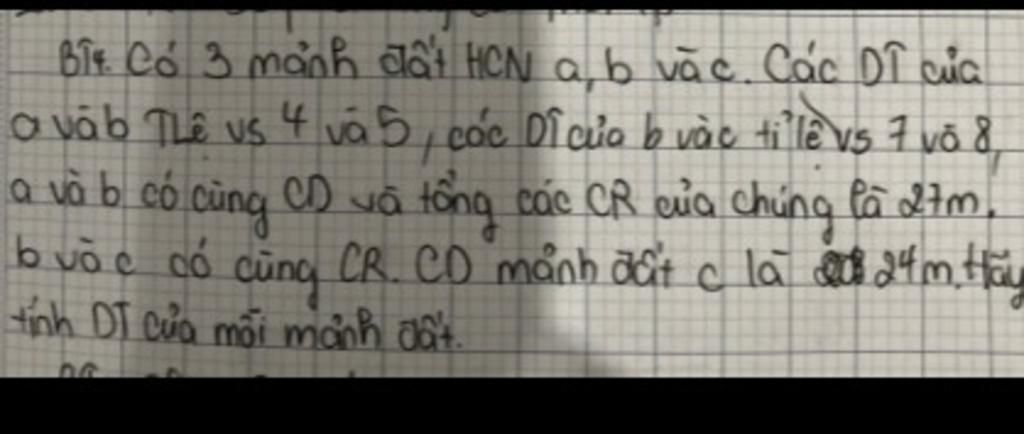 BT4. Có 3 mảnh đất HCN a, b và c. Các DT của
a và b TLệ vs 4 và 5, các DT của b và c tỉ lệ vs 7 và 8,
a và b có cùng CD và tổng các CR của chúng là 27m.
b và c có cùng CR. CD mảnh đất c là 24m. Hãy
tính DT của mỗi mảnh đất.